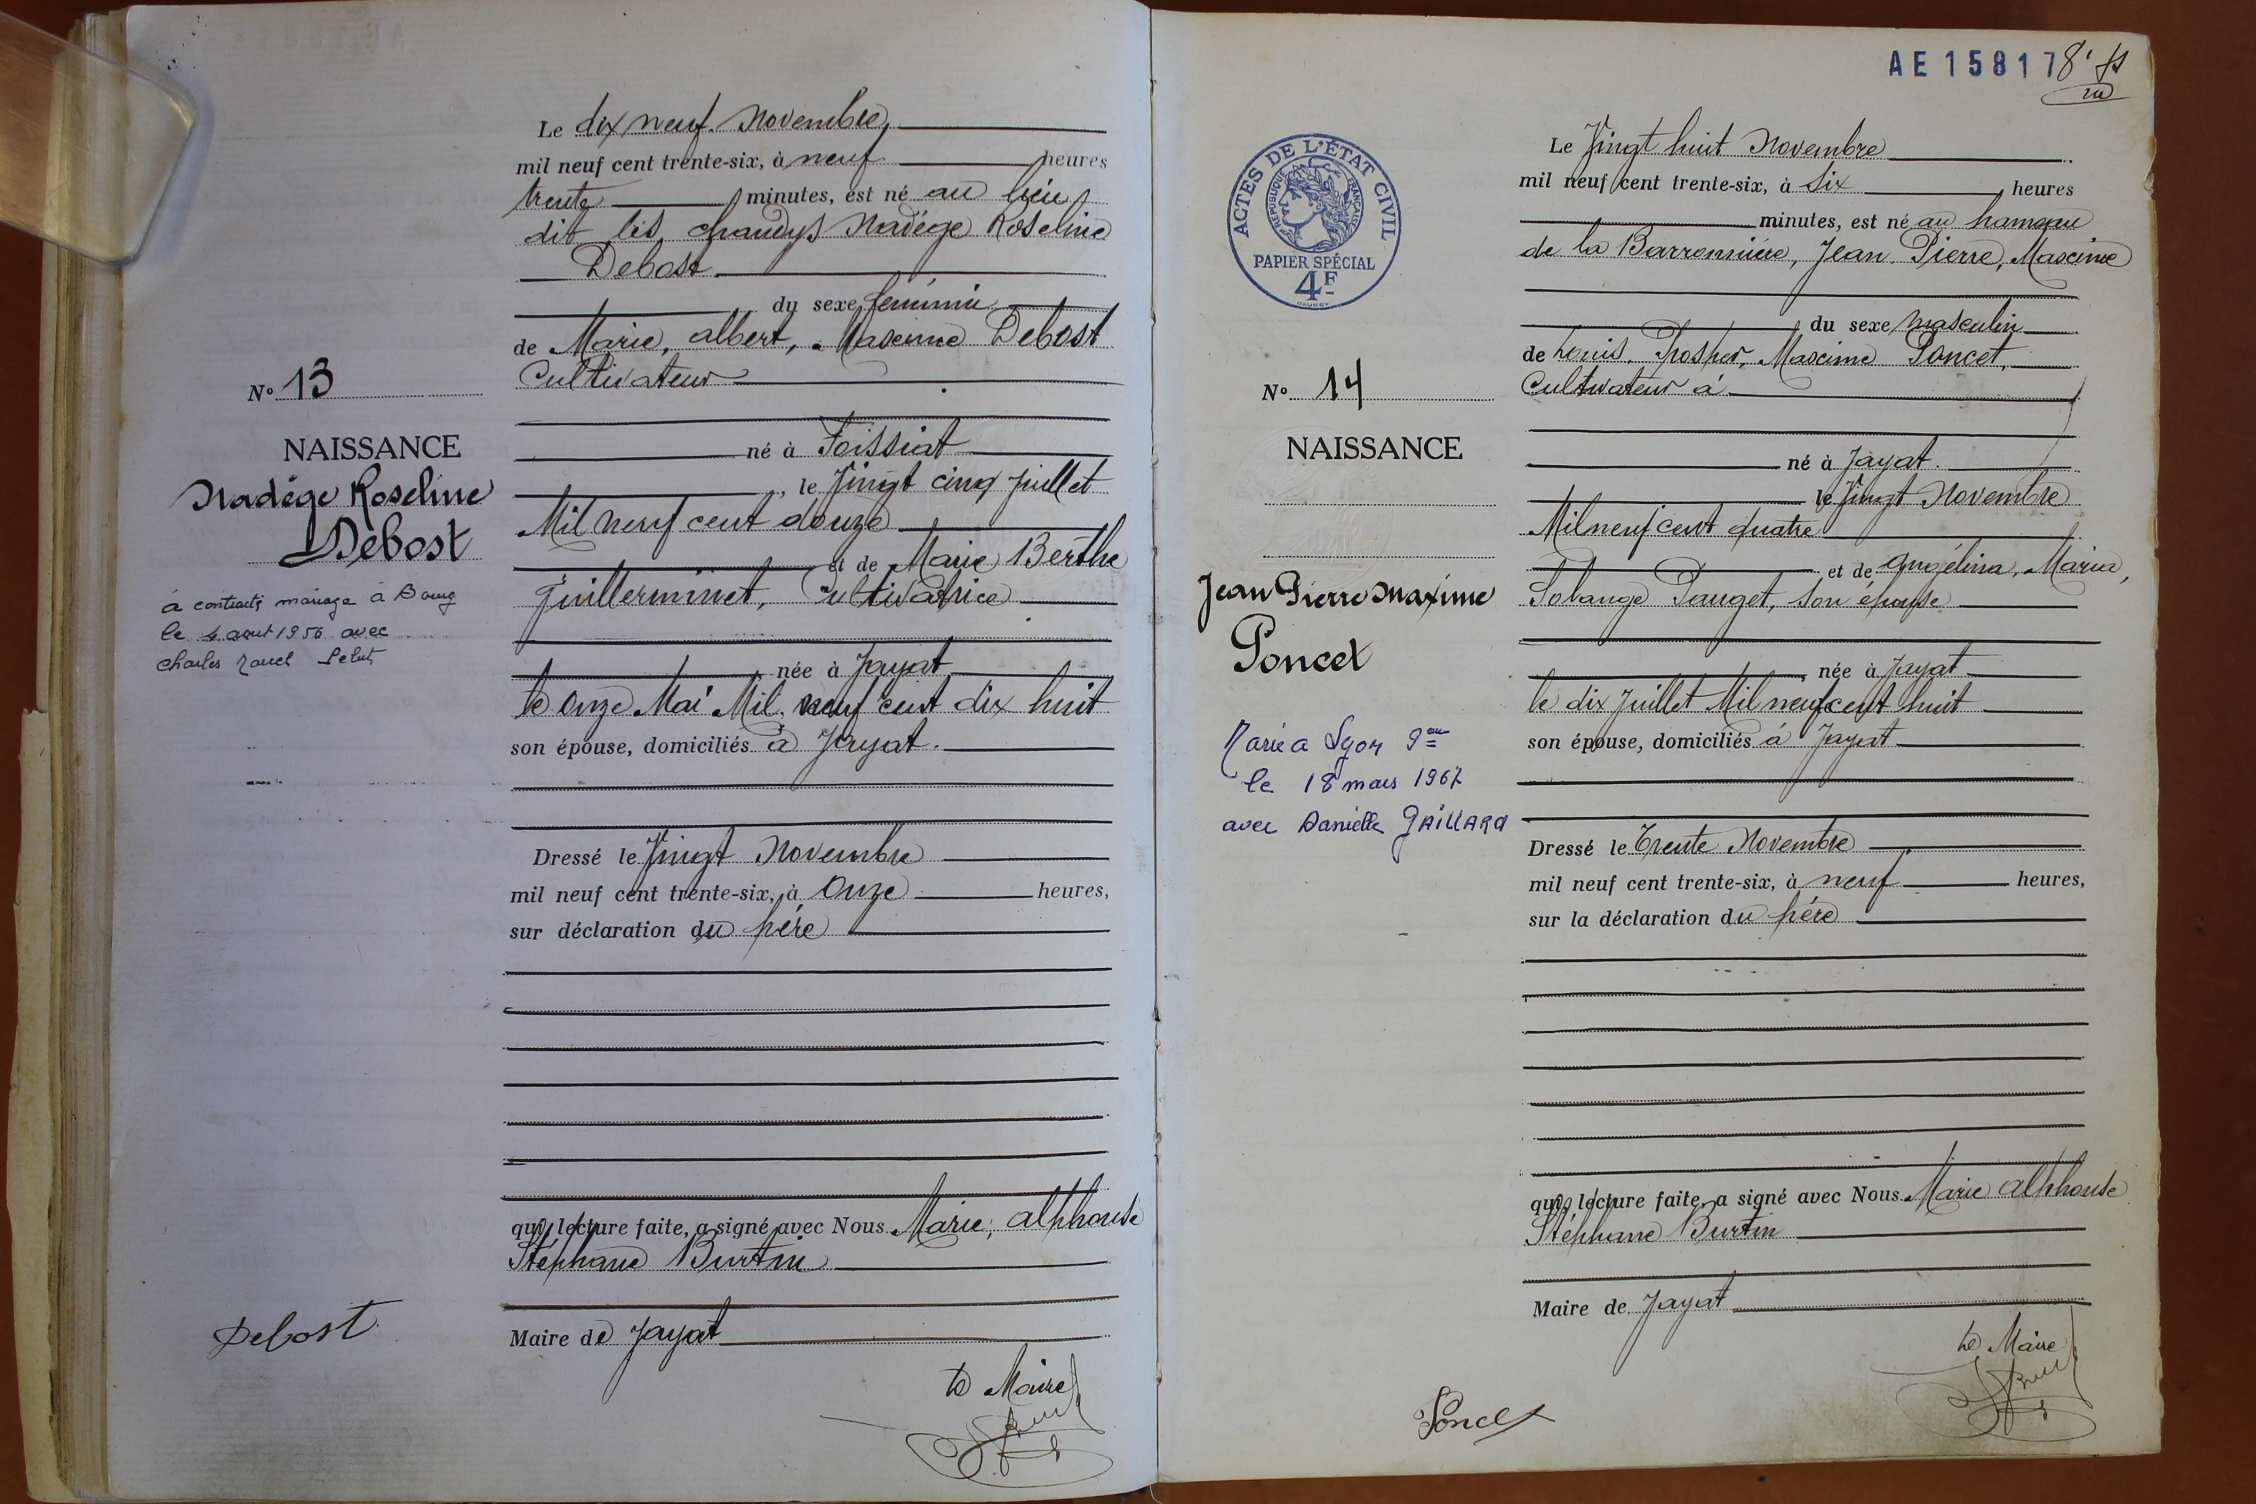 Le dix neuf Novembre
mil neuf cent trente-six, à neuf heures
trente minutes, est né au lieu
dit les chaudys Nadège Roseline
Debost
du sexe feminin
de Marie, albert, Maxime Debost
Cultivateur
N° 13
né à Foissiat
NAISSANCE
, le Vingt cinq Juillet
Nadège Roseline
Mil neuf cent douze
Debost
et de Marie Berthe
Guillerminet, Cultivatrice
à contracté mariage à Bourg
le 4 aout 1956 avec
Charles Marcel
née à Jayat
le onze Mai Mil neuf cent dix huit
son épouse, domiciliés à Jayat.
Dressé le Vingt Novembre
mil neuf cent trente-six, à onze heures,
sur déclaration du père
qui, lecture faite, a signé avec Nous Marie, alphonse
Stéphane Burtin
Maire de Jayat
Debost
Le Maire
AE 15817 8
ACTES DE L'ÉTAT CIVIL
RÉPUBLIQUE FRANÇAISE
PAPIER SPÉCIAL
4F
Le Vingt huit Novembre
mil neuf cent trente-six, à Six heures
minutes, est né au hameau
de la Barronnière, Jean Pierre, Maxime
du sexe masculin
de Louis, Prosper, Maxime Poncet,
Cultivateur à
N° 14
NAISSANCE
né à Jayat.
le Vingt Novembre
Mil neuf cent quatre
et de Angélina, Maria,
Jean Pierre Maxime
Solange Pauget, son épouse
Poncet
, née à Jayat
le dix Juillet Mil neuf cent huit
son épouse, domiciliés à Jayat
Marié à Lyon 9eme
le 18 mars 1967
avec Danielle GAILLARD
Dressé le Trente Novembre
mil neuf cent trente-six, à neuf heures,
sur la déclaration du père
qui, lecture faite, a signé avec Nous Marie alphonse
Stéphane Burtin
Maire de Jayat
Le Maire
Poncet